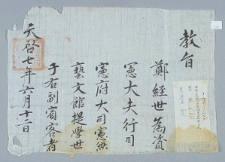 敎旨
鄭經世爲資
憲大夫行司
憲府大司憲兼
藝文館提學世
子右副賓客者
天啓七年六月十二日